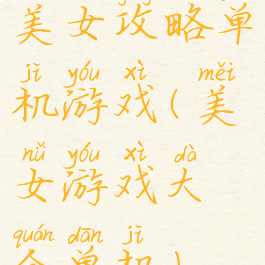 美女攻略单
jī yóu xì měi
机游戏(美
nǚ yóu xì dà
女游戏大
quán dān jī
全单机)